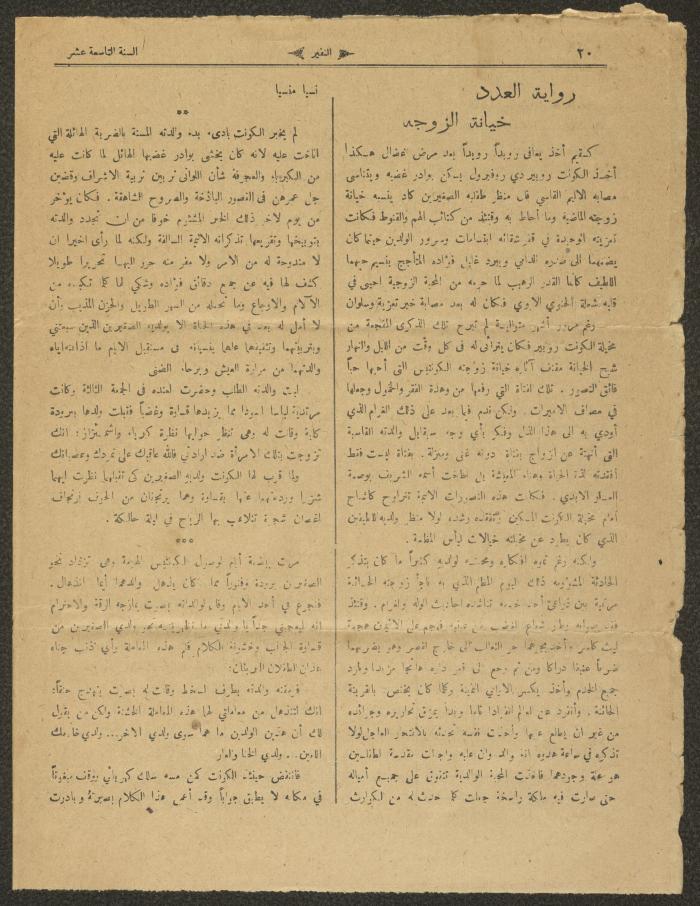 ٢٠
النفير
السنة التاسعة عشر
رواية العدد
خيانة الزوجه
كسقيم أخذ يعافى رويداً رويداً بعد مرض عضال هكذا
أخذ الكونت روبير دي روفيرول يسكن بوادر غضبه ويتناسى
مصابه الاليم القاسي فان منظر طفليه الصغيرين كاد ينسيه خيانة
زوجته الماضية وما أحاط به وقتئذ من كتائب الهم والقنوط فكانت
تعزيته الوحيدة في قر شقائه ابتسامات وسرور الولدين حينما كان
يضمهما الى صدره الدامي ويبرد غليل فؤاده المتأجج بنسيم حبهما
اللطيف كأنما القدر الرهيب لما حرمه من المحبة الزوجية احيى في
قلبه شعلة الحنو الابوي فكان له بعد مصابة خير تعزية وسلوان
رغم مرور أشهر متوالية لم تبرح تلك الذكرى المفجعة من
مخيلة الكونت روبير فكان يتراءى له في كل وقت من الليل والنهار
شبح الخيانة مقتف آثاره خيانة زوجته الكونتيس التي أحبها حباً
فائق التصور. تلك الفتاة التي رفعها من وهدة الفقر والخمول وجعلها
في مصاف الاميرات. ولكن ندم فيما بعد على ذلك الغرام الذي
أودي به الى هذا الذل وفكر بأي وجه سيقابل والدته القاسية
التي أنهته عن الزواج بفتاة دونه غنى ومنزلة. بفتاة ليست فقط
أفقدته لذة الحياة وهناء المعيشة بل لطخت أسمه الشريف بوصمة
العار الابدي. فكانت هذه التصورات الاليمة تتراوح كاشباح
أمام مخيلة الكونت المسكين وتفقده رشده لولا منظر ولديه اللطيفين
الذي كان يطرد عن مخيلته خيالات ليأس المظلمة.
ولكنه رغم تموه افكاره ومحبته لولديه كثيراً ما كان يتذكر
الحادثة المشؤومه ذلك اليوم المظلم الذي به فاجأ زوجته الخائنة
مرتمية بين ذراعي أحد خدمه تناشده احاديث الوله والغرام. وقتئذ
فقد صوابه وطار شعاع الغضب من عينيه فهجم على الاثنين هجمة
ليث كاسر وأخذ يجرهما جر الثعالب الى خارج القصر وهو يضربهما
ضرباً عنيفاً دراكا ومن ثم رجع الى قصره هائجاً مزبداً وطرد
جميع الخدم وأخذ يكسر الاواني الثمينة وكلما كان يختص بالقرينة
الخائنة. وأنفرد عن العالم انفراداً تاماً وبدأ يمزق تحاريره وجرائده
من غير ان يطلع عليها وأخذت نفسه تحدثه بالانتحار العاجل لولا
تذكره في ساعة هدوه انه والد وان عليه واجبات مقدسة لطفلين
هو علة وجودهما فاخذت المحبة الوالدية تتفوق على جميع أمياله
حتى صارت فيه ملكة راسخة جبلت كل حدث له من الكوارث
نسيا منسيا
**
لم يخبر الكونت بادىء بدء والدته المسنة بالضربة الهائلة التي
اناخت عليه لانه كان يخشى بوادر غضبها الهائل لما كانت عليه
من الكبرياء والعجرفة شأن اللواتي تربين تربية الاشراف وقضين
جل عمرهن في القصور الباذخة والصروح الشاهقة. فكان يؤخر
من يوم لآخر ذلك الخبر المشئوم خوفا من ان تجدد والدته
بتوبيخها وتقريعها تذكراته الاليمة السالفة ولكنه لما رأى اخيرا ان
لا مندوحة له من الامر ولا مفر منه حرر اليها تحريراً طويلا
كشف لها فيه عن جميع دقائق فؤاده وشكى لها كما تكبده من
الآلام والاوجاع وما تحمله من السهر الطويل والحزن المذيب بأن
لا أمل له بعد في هذه الحياة الا بولديه الصغيرين الذين سيعتني
وبتربيتهما وتثقيفهما علهما ينسيانه في مستقبل الايام ما اذاقته اياه
والدتهما من مرارة العيش وبرحاء الضنى
لبت والدته الطلب وحضرت لعنده في الجمعة الثالثة وكانت
مرتدية لباسا اسودا مما يزيدها قساوة وغضباً فقبلت ولدها ببرودة
كلية وقالت له وهي تنظر حواليها نظرة كبرياء واشمئزاز: انك
تزوجت بتلك الامرأة ضد ارادتي فالله عاقبك على تمردك وعصيانك
ولما قرب لها الكونت ولديه الصغيرين كي تقبلهما نظرت اليهما
شزرا وردتهما عنها بقساوة وهما يرتجفان من الخوف ارتجاف
اغصان شجرة تتلاعب بها الرياح في ليلة حالكة.
***
مرت بضعة أيام لوصول الكونتيس الهرمة وهي تزداد نحو
الصغيرين برودة ونفوراً مما كان يذهل والدهما أيما انذهال.
فتجرع في أحد الايام وقال لوالدته بصوت يمازجه الرقة والاحترام
انه ليدهشني جداً يا والدتي ما تظهرينه نحو ولدي الصغيرين من
قساوة الجانب وخشونة الكلام فلم هذه المعاملة وأي ذنب جناه
هذان الطفلان البريئان:
فرمقته والدته بطرف السخط وقالت له بصوت يتهدج حنقاً:
انك لتنذهل من معاملتي لهما هذه المعاملة الخشنة ولكن من يقول
لك أن هذين الولدين ما هما سوى ولدي الآخر... ولدي خادمك
اللعين.. ولدي الخنا والعار
فانتفض حينئذ الكونت كمن مسه سلك كهربائي ووقف مبهوتاً
في مكانه لا يطيق جواباً وقد أعمى هذا الكلام بصيرته وبادرت